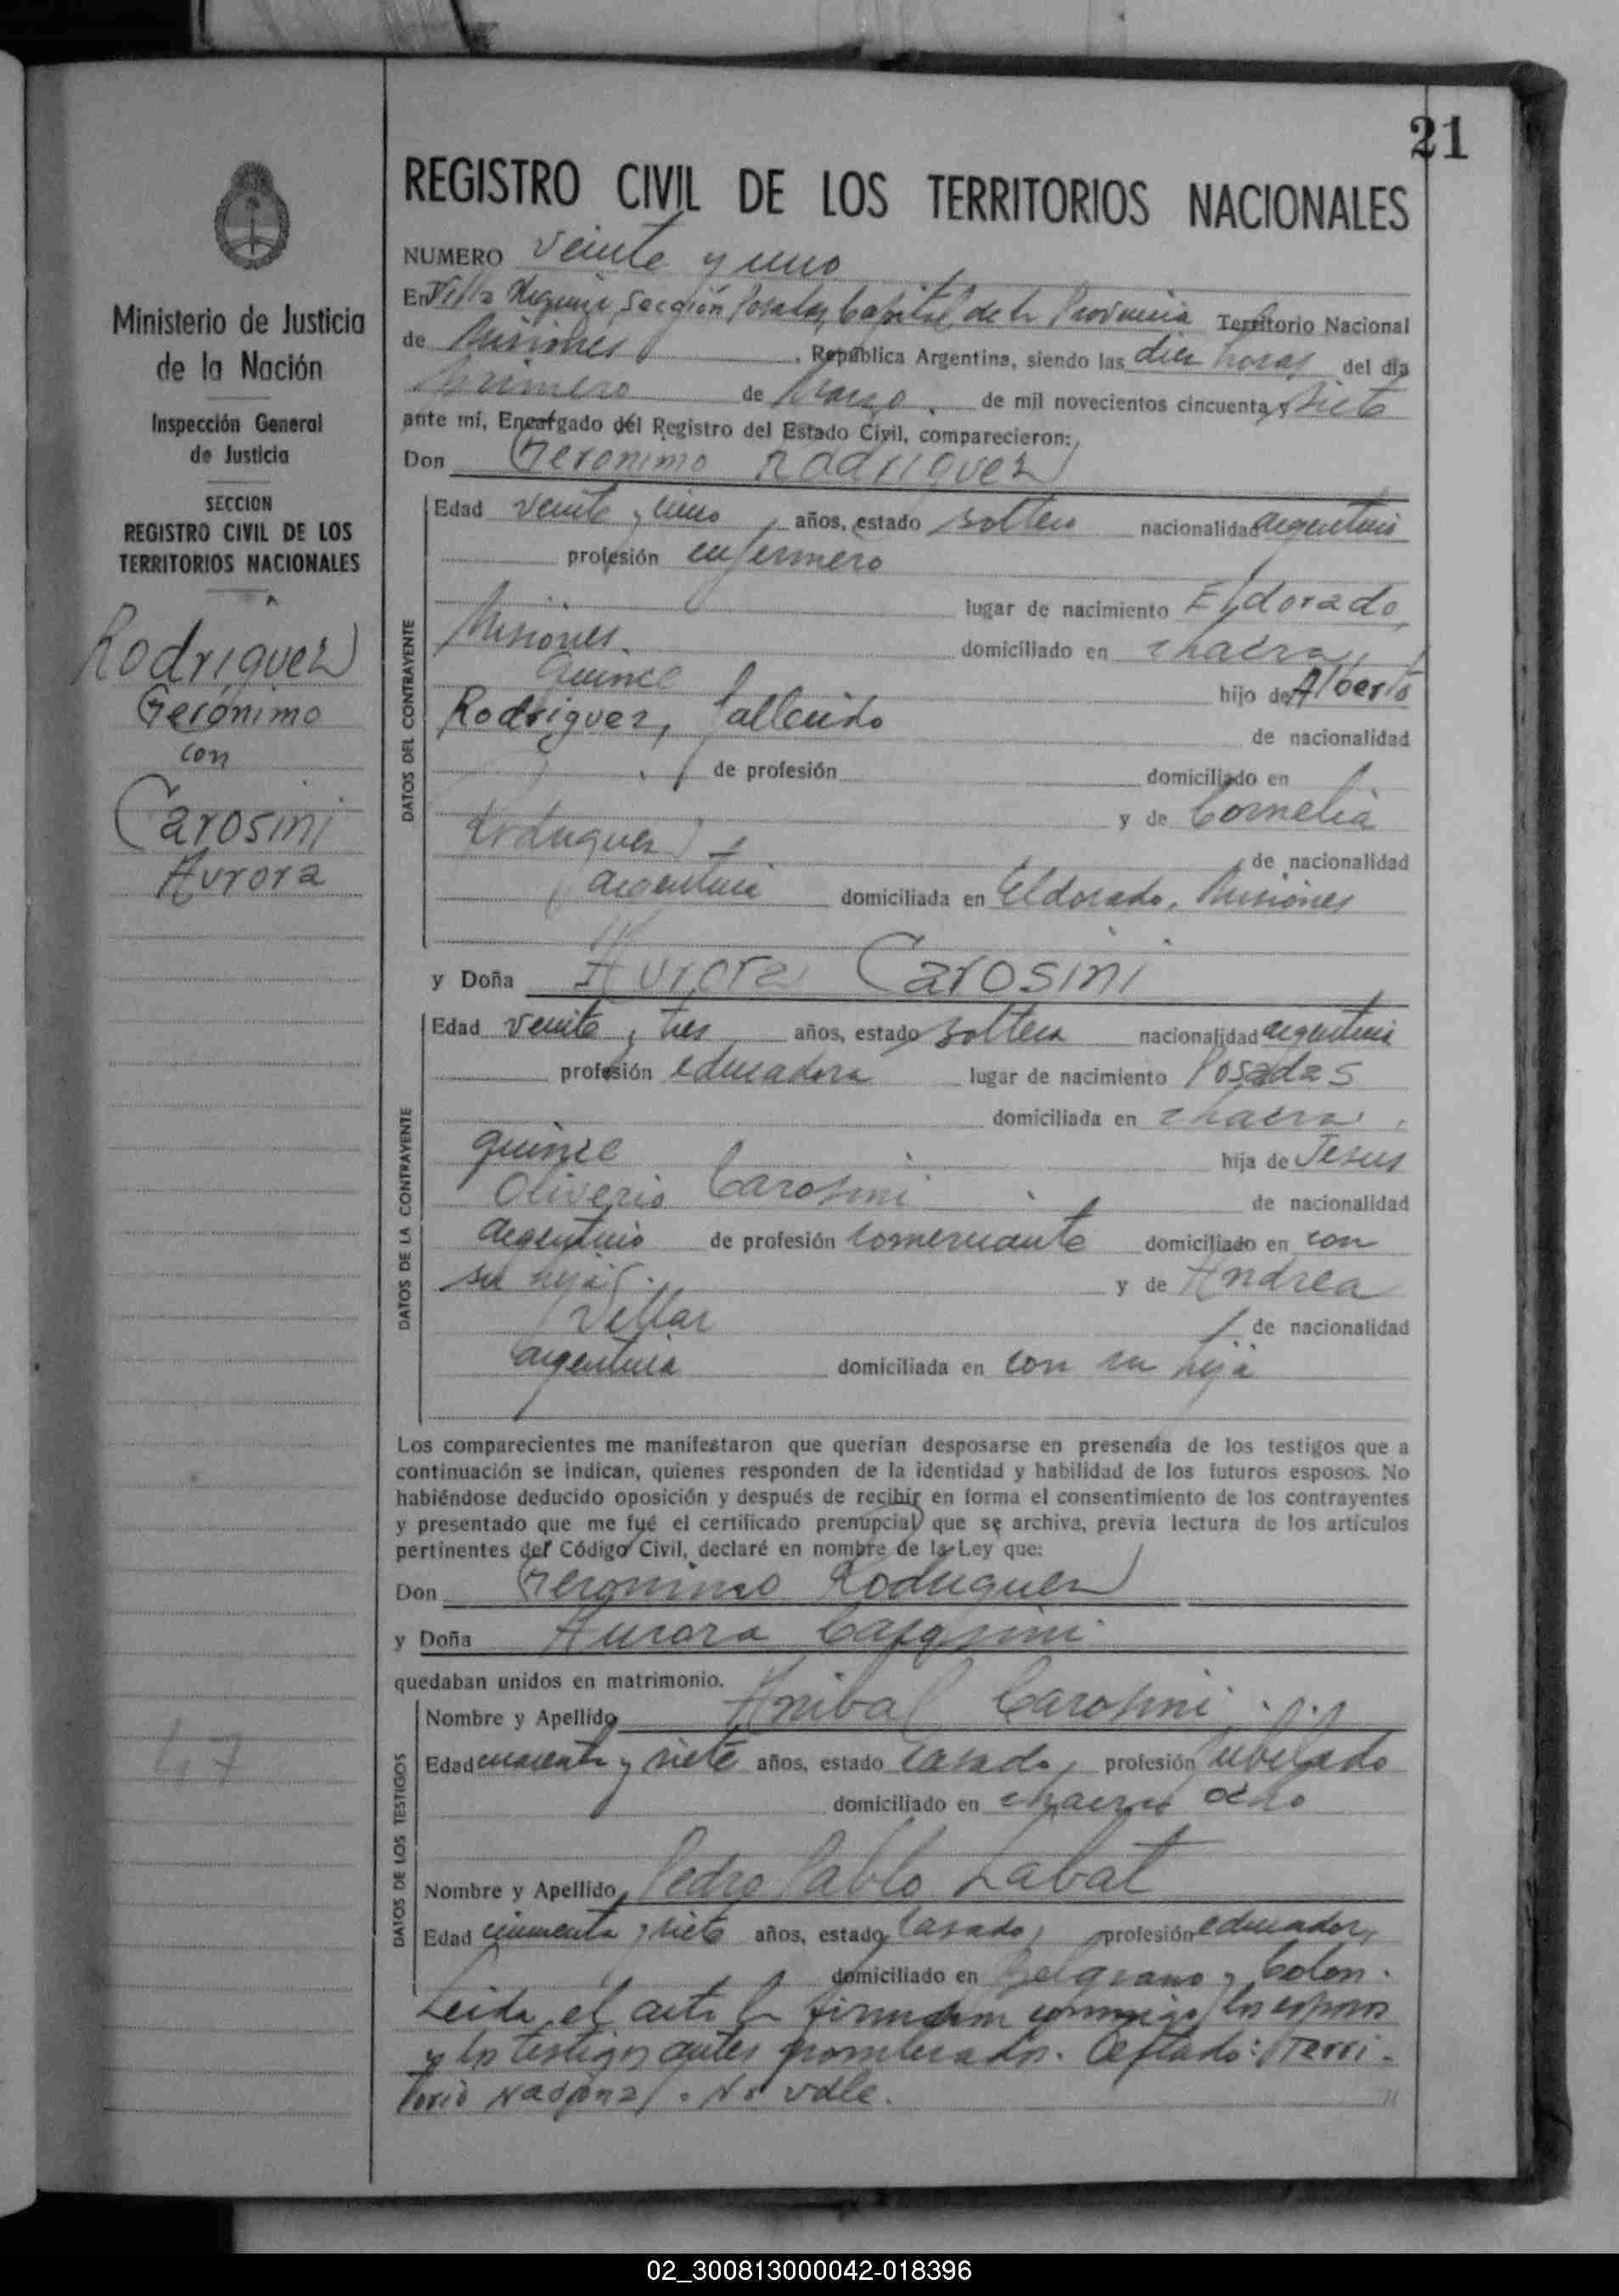 21
Ministerio de Justicia
de la Nación
Inspección General
de Justicia
SECCION
REGISTRO CIVIL DE LOS
TERRITORIOS NACIONALES
Rodriguez
Gerónimo
con
Carosini
Aurora
47
REGISTRO CIVIL DE LOS TERRITORIOS NACIONALES
NUMERO veinte y uno
En Villa Sección Posadas, Capital de la Provincia Territorio Nacional
de Misiones . República Argentina, siendo las diez horas del día
primero de Marzo de mil novecientos cincuenta y siete
ante mí, Encargado del Registro del Estado Civil, comparecieron:
Don Geronimo Rodriguez
DATOS DEL CONTRAYENTE
Edad veinte y años, estado soltero nacionalidad argentino
profesión enfermero
lugar de nacimiento Eldorado,
Misiones. domiciliado en chacra
quince hijo de Alberto
Rodriguez, fallecido de nacionalidad
de profesión domiciliado en
y de Cornelia
Rodriguez de nacionalidad
argentina domiciliada en Eldorado, Misiones
y Doña Aurora Carosini
DATOS DE LA CONTRAYENTE
Edad veinte y tres años, estado soltera nacionalidad argentina
profesión educadora lugar de nacimiento Posadas
domiciliada en chacra
quince hija de Jesus
Oliverio Carosini de nacionalidad
argentino de profesión comerciante domiciliado en con
su hija. y de Andrea
Villar de nacionalidad
argentina domiciliada en con su hija
Los comparecientes me manifestaron que querían desposarse en presencia de los testigos que a
continuación se indican, quienes responden de la identidad y habilidad de los futuros esposos. No
habiéndose deducido oposición y después de recibir en forma el consentimiento de los contrayentes
y presentado que me fué el certificado prenupcial que se archiva, previa lectura de los artículos
pertinentes del Código Civil, declaré en nombre de la Ley que:
Don Geronimo Rodriguez
y Doña Aurora Carosini
quedaban unidos en matrimonio.
DATOS DE LOS TESTIGOS
Nombre y Apellido Anibal Carosini
Edad cuarenta y siete años, estado casado, profesión jubilado
domiciliado en chacra ocho
Nombre y Apellido Pedro Pablo Labat
Edad cincuenta y siete años, estado casado, profesión educador,
domiciliado en Belgrano y Colon.
Leida el acta la firmaron conmigo los esposos
y los testigos antes nombrados. Testado: Terri-
torio Nacional. No vale.
02_300813000042-018396